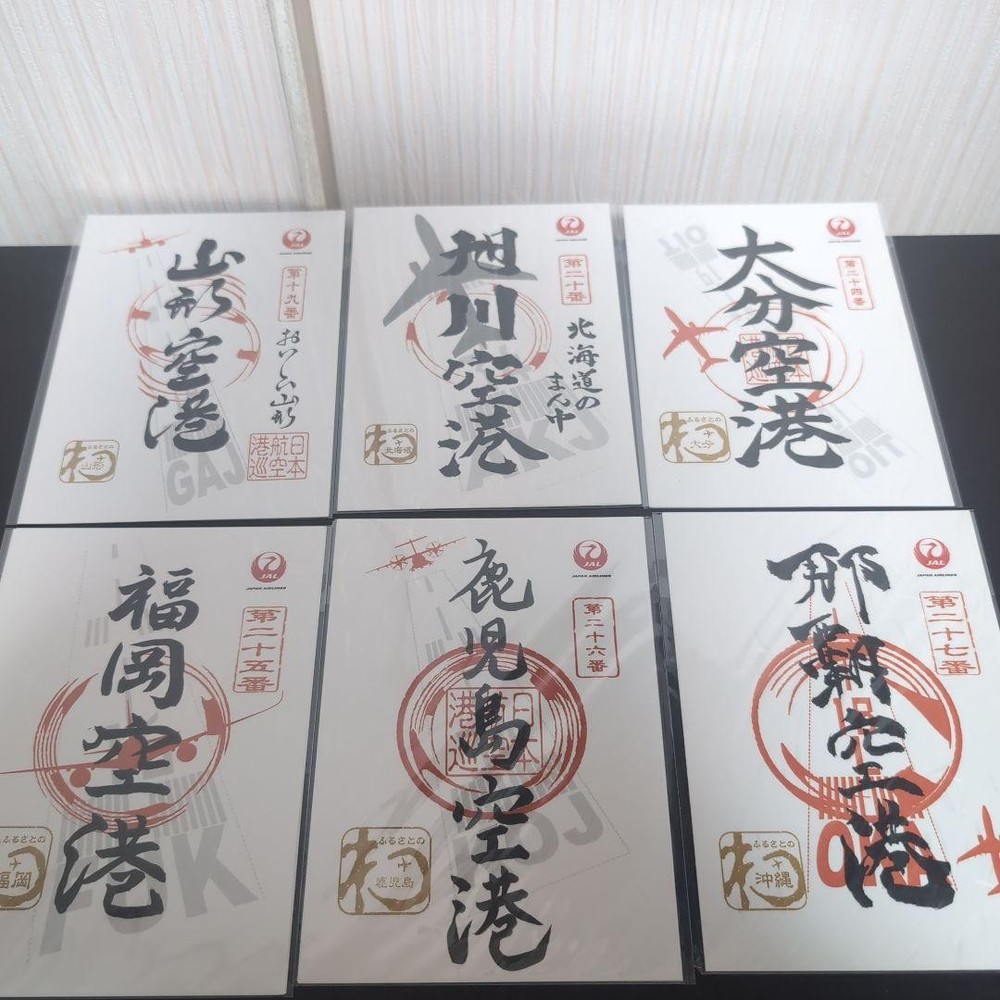 山形空港
JAL
JAPAN AIRLINES
第十九番
おいしい山形
ふるさとの
山形
GAJ
日本
航空
港巡
旭川空港
JAL
JAPAN AIRLINES
第二十番
北海道の
まん中
ふるさとの
北海道
AKJ
大分空港
JAL
JAPAN AIRLINES
第二十四番
ふるさとの
大分
OIT
福岡空港
JAL
JAPAN AIRLINES
第二十五番
ふるさとの
福岡
FUK
鹿児島空港
JAL
JAPAN AIRLINES
第二十六番
日本
航空
港巡
ふるさとの
鹿児島
KOJ
那覇空港
JAL
JAPAN AIRLINES
第二十七番
ふるさとの
沖縄
OKA